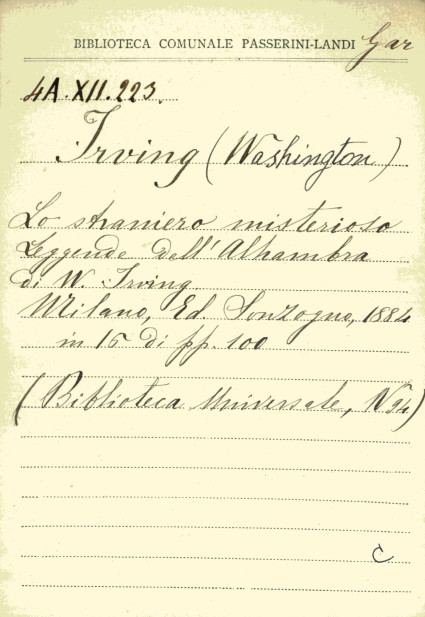 BIBLIOTECA COMUNALE PASSERINI-LANDI Gar
4A.XII.223.
Irving (Washington)
Lo straniero misterioso
Leggende dell'Alhambra
di W. Irving
Milano, Ed. Sonzogno, 1884
in 16 di pp. 100
(Biblioteca Universale, N° 94)
C